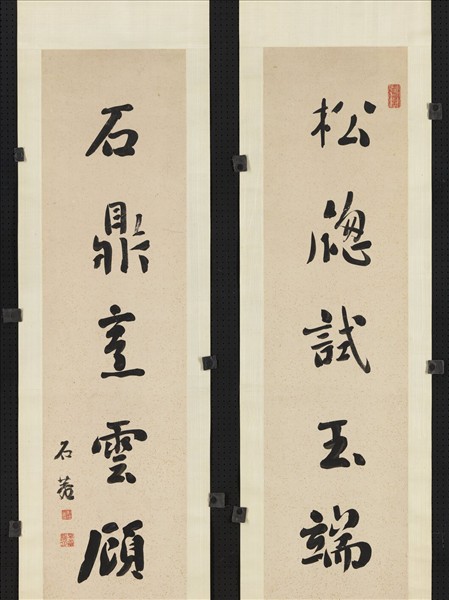 松牕試玉端
石鼎烹雲顧
石菴